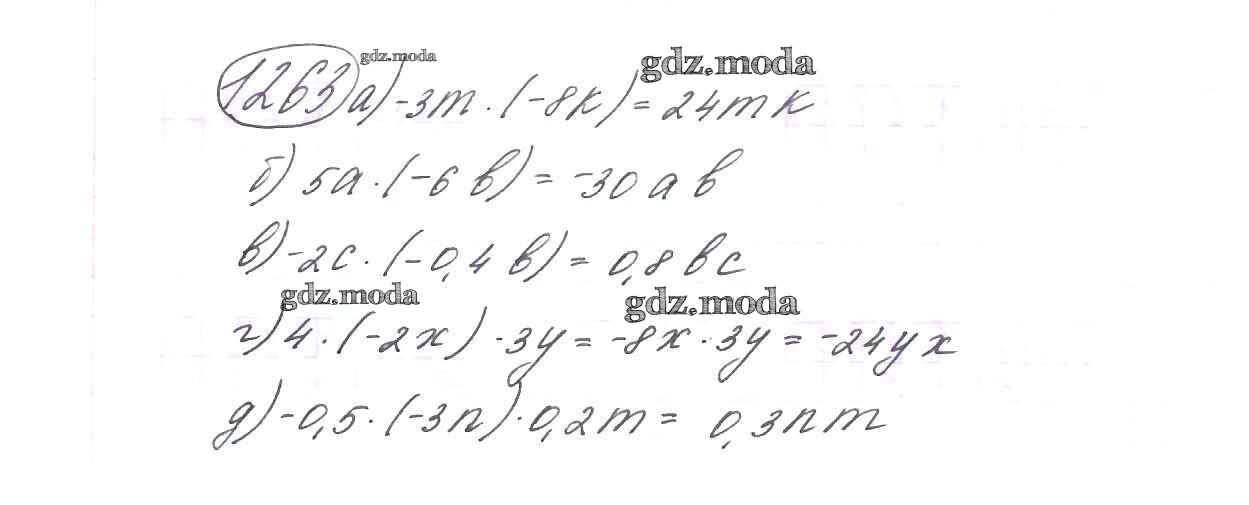 gdz.moda
gdz.moda
1263 а) -3m · (-8k) = 24mk
б) 5a · (-6b) = -30ab
в) -2c · (-0,4b) = 0,8bc
gdz.moda
gdz.moda
г) 4 · (-2x) · 3y = -8x · 3y = -24yx
д) -0,5 · (-3n) · 0,2m = 0,3nm